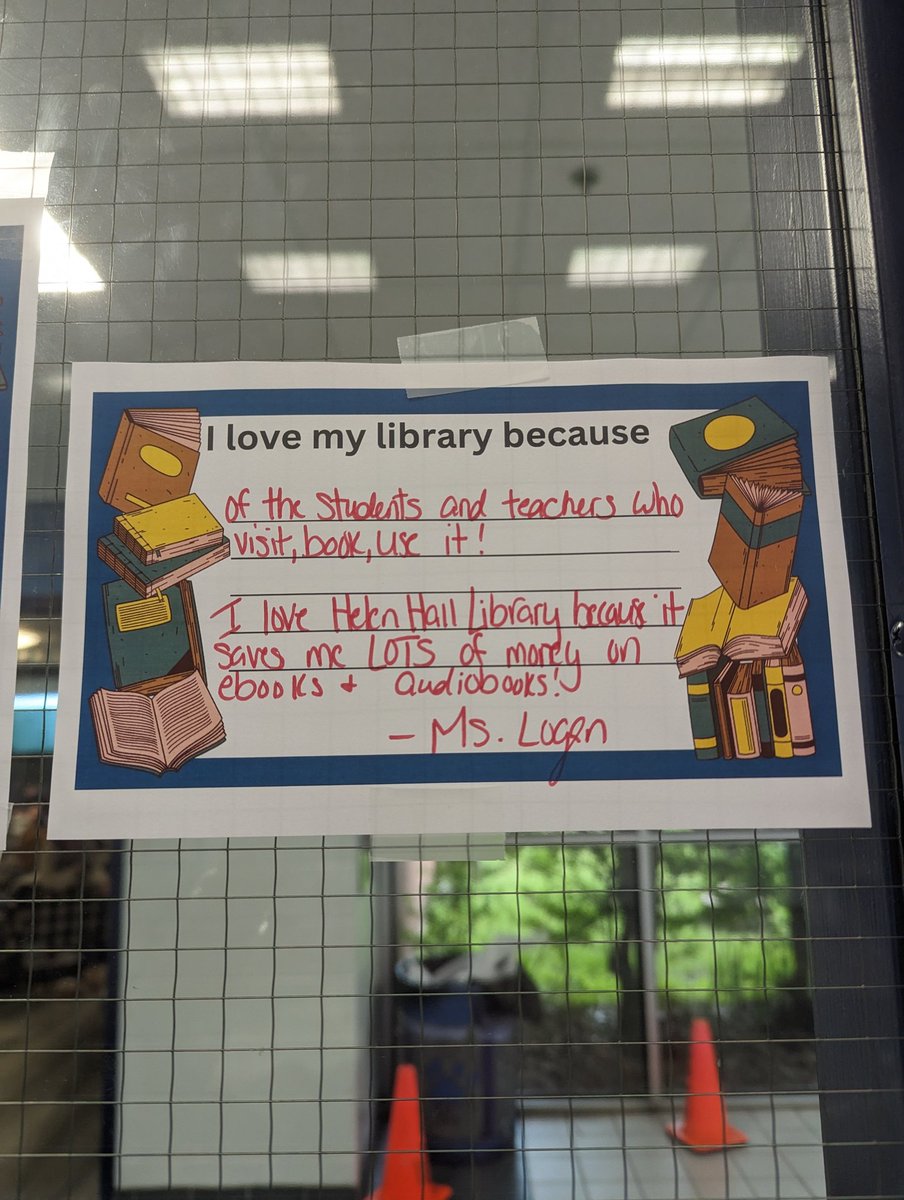 I love my library because
of the students and teachers who
visit, book, use it!
I love Helen Hall Library because it
saves me LOTS of money on
ebooks + audiobooks!
- Ms. Logan